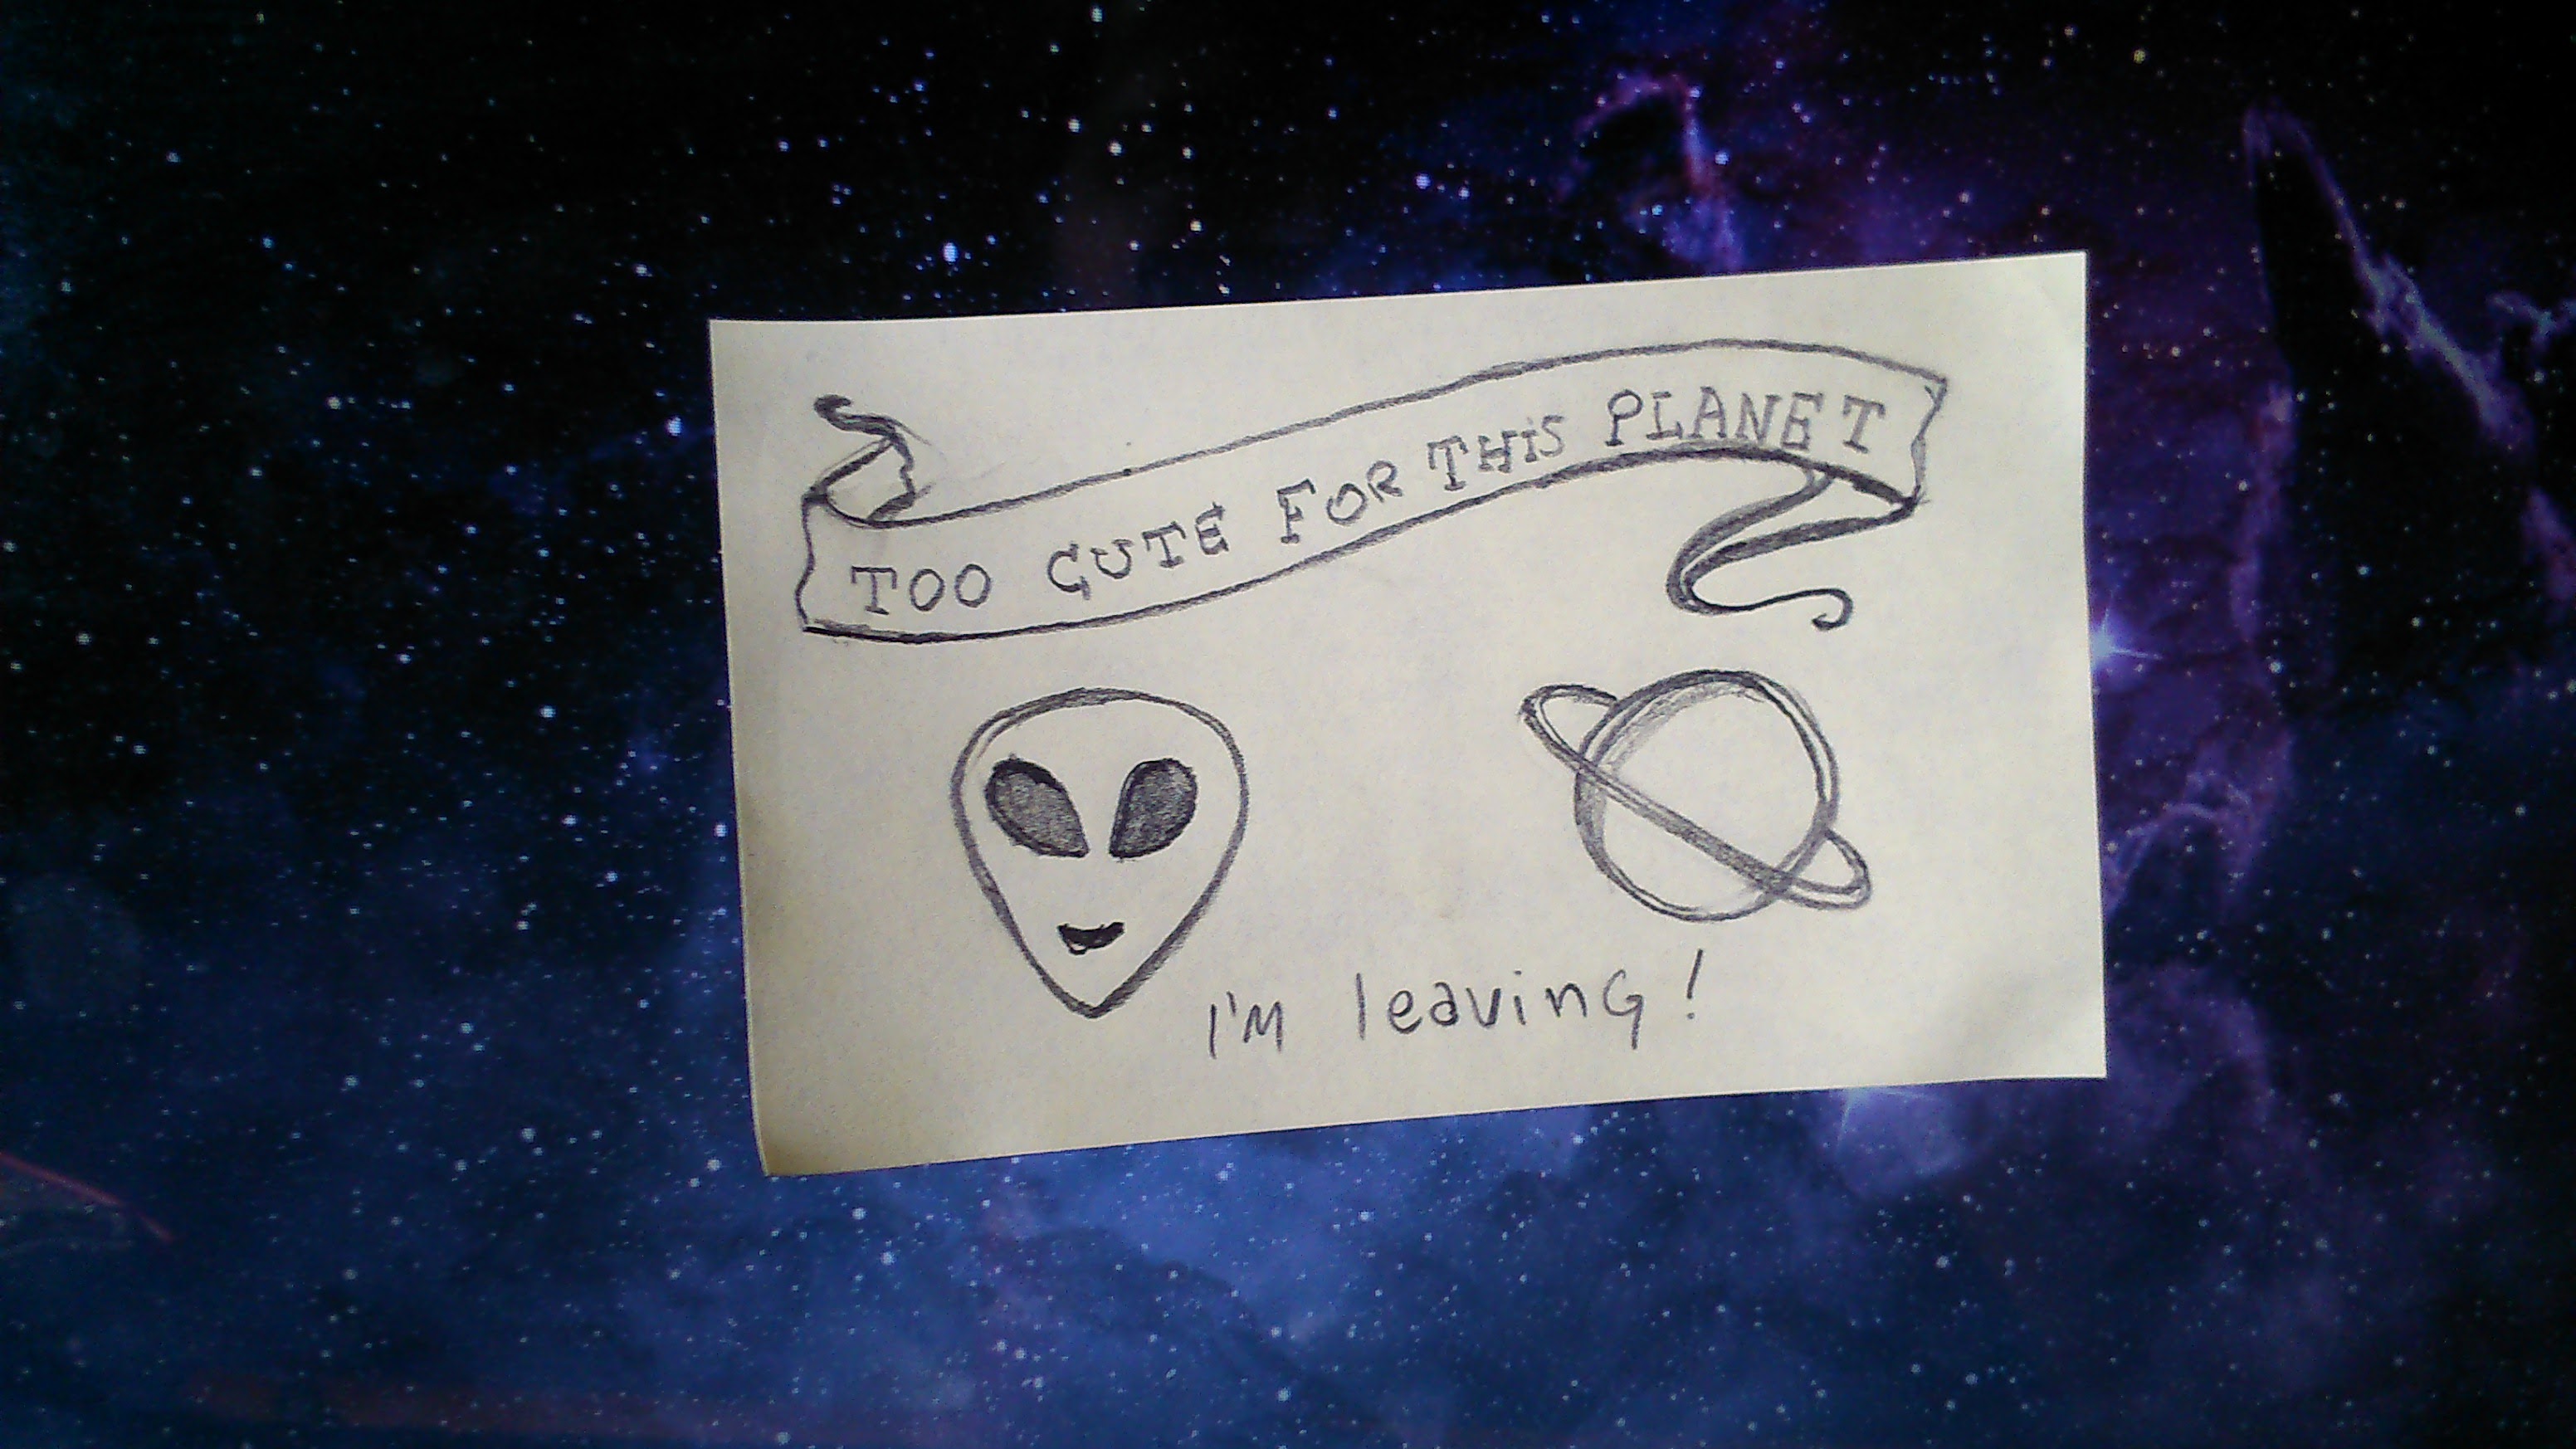 TOO CUTE FOR THIS PLANET
I'M leavinG!